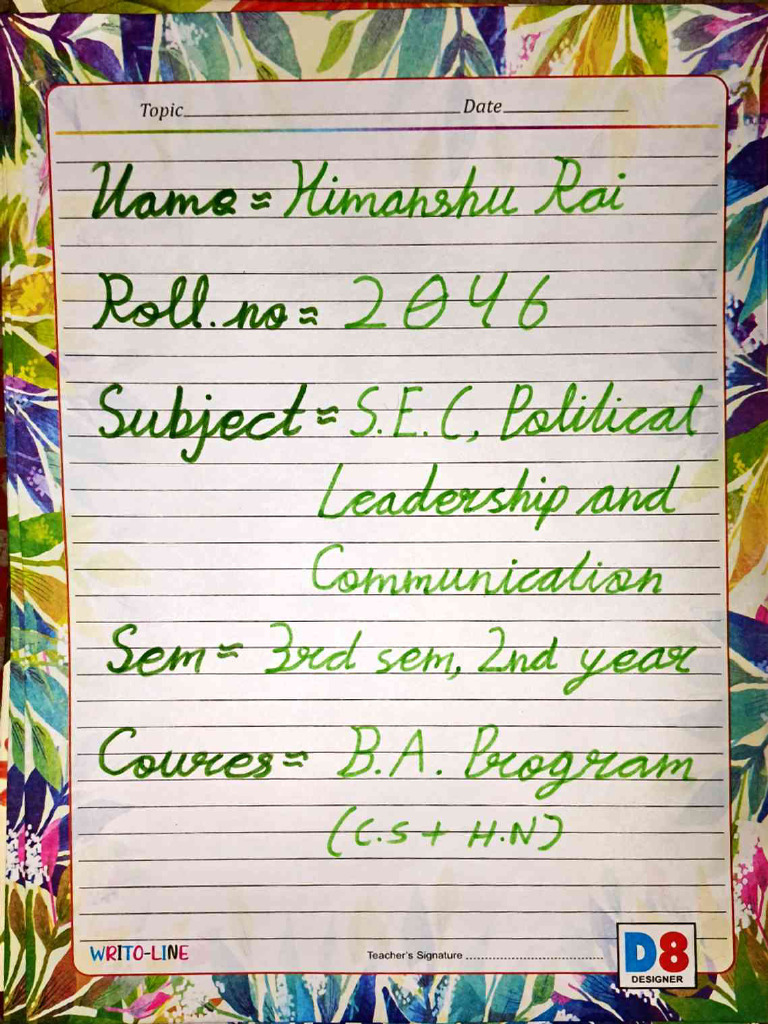 Topic Date
Name = Himanshu Rai
Roll. no = 2046
Subject = S.E.C, Political
Leadership and
Communication
Sem = 3rd sem, 2nd year
Coures = B.A. Program
(C.S + H.N)
WRITO-LINE Teacher's Signature D8
DESIGNER